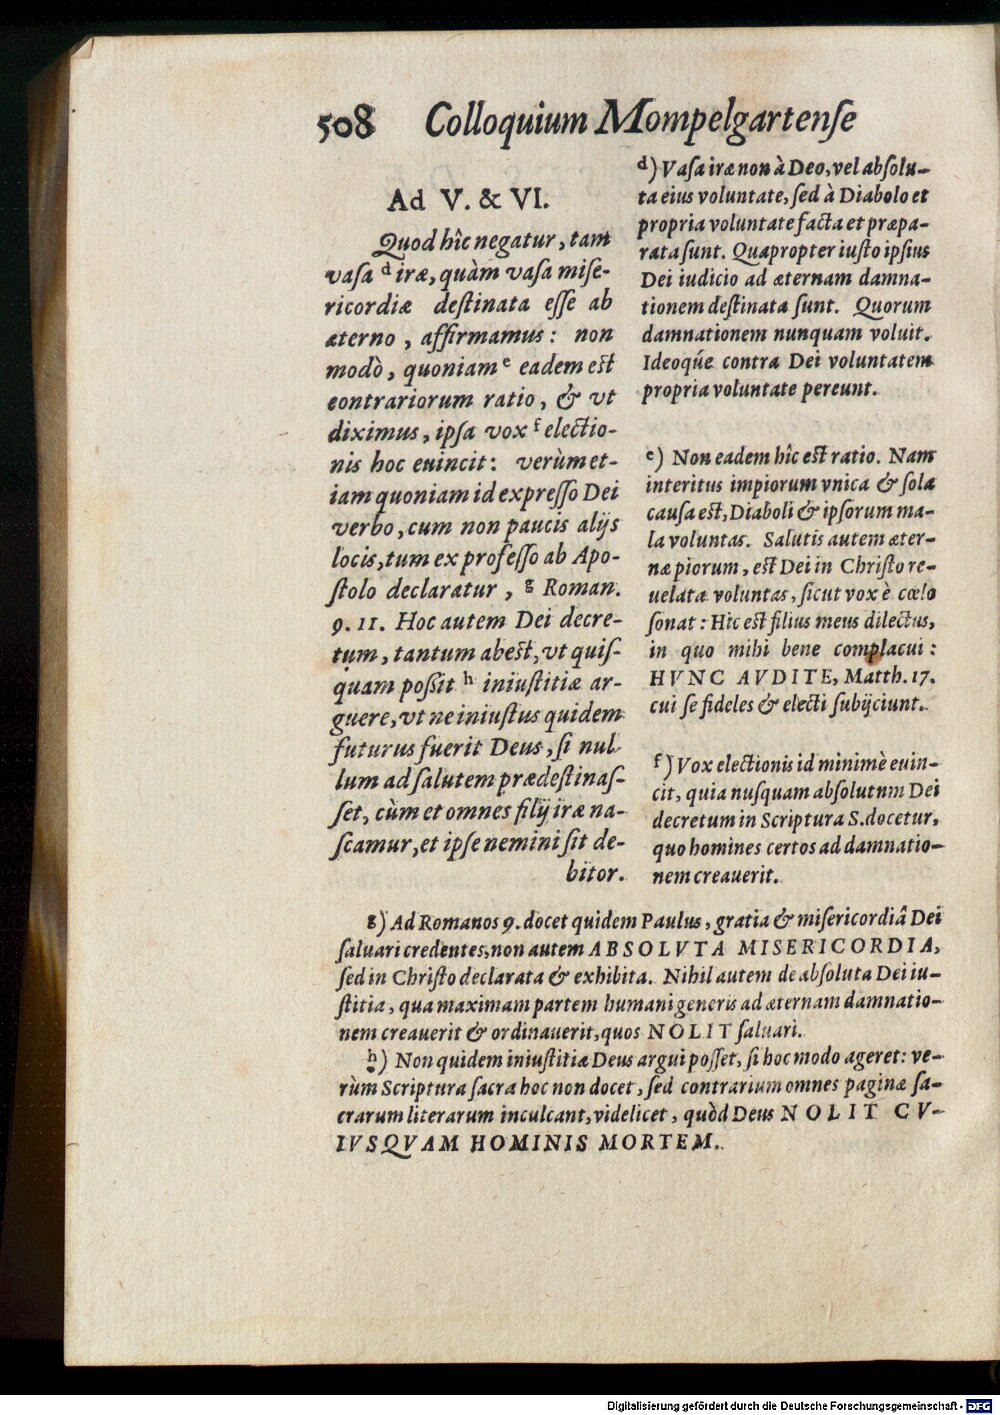 508 Colloquium Mompelgartenſe
Ad V. & VI.
Quod hîc negatur, tam
vaſa ᵈ iræ, quàm vaſa miſe-
ricordiæ deſtinata eſſe ab
æterno, affirmamus: non
modò, quoniam ᵉ eadem eſt
contrariorum ratio, & vt
diximus, ipſa vox ᶠ electio-
nis hoc euincit: verùm et-
iam quoniam id expreſſo Dei
verbo, cum non paucis alijs
locis, tum ex profeſſo ab Apo-
ſtolo declaratur, ᵍ Roman.
9. 11. Hoc autem Dei decre-
tum, tantum abeſt, vt quiſ-
quam poſſit ʰ iniuſtitiæ ar-
guere, vt ne iniuſtus quidem
futurus fuerit Deus, ſi nul-
lum ad ſalutem prædeſtinaſ-
ſet, cùm et omnes filij iræ na-
ſcamur, et ipſe nemini ſit de-
bitor.
ᵈ) Vaſa iræ non à Deo, vel abſolu-
ta eius voluntate, ſed à Diabolo et
propria voluntate facta et præpa-
rata ſunt. Quapropter iuſto ipſius
Dei iudicio ad æternam damna-
tionem deſtinata ſunt. Quorum
damnationem nunquam voluit.
Ideoq́ue contra Dei voluntatem
propria voluntate pereunt.
ᵉ) Non eadem hîc eſt ratio. Nam
interitus impiorum vnica & ſola
cauſa eſt, Diaboli & ipſorum ma-
la voluntas. Salutis autem æter-
næ piorum, eſt Dei in Chriſto re-
uelata voluntas, ſicut vox è cœlo
ſonat: Hic eſt filius meus dilectus,
in quo mihi bene complacui:
HVNC AVDITE, Matth. 17.
cui ſe fideles & electi ſubijciunt.
ᶠ) Vox electionis id minimè euin-
cit, quia nuſquam abſolutnm Dei
decretum in Scriptura S. docetur,
quo homines certos ad damnatio-
nem creauerit.
ᵍ) Ad Romanos 9. docet quidem Paulus, gratia & miſericordiâ Dei
ſaluari credentes, non autem ABSOLVTA MISERICORDIA,
ſed in Chriſto declarata & exhibita. Nihil autem de abſoluta Dei iu-
ſtitia, qua maximam partem humani generis ad æternam damnatio-
nem creauerit & ordinauerit, quos NOLIT ſaluari.
ʰ) Non quidem iniuſtitiæ Deus argui poſſet, ſi hoc modo ageret: ve-
rùm Scriptura ſacra hoc non docet, ſed contrarium omnes paginæ ſa-
crarum literarum inculcant, videlicet, quòd Deus NOLIT CV-
IVSQVAM HOMINIS MORTEM.
Digitalisierung gefördert durch die Deutsche Forschungsgemeinschaft - DFG